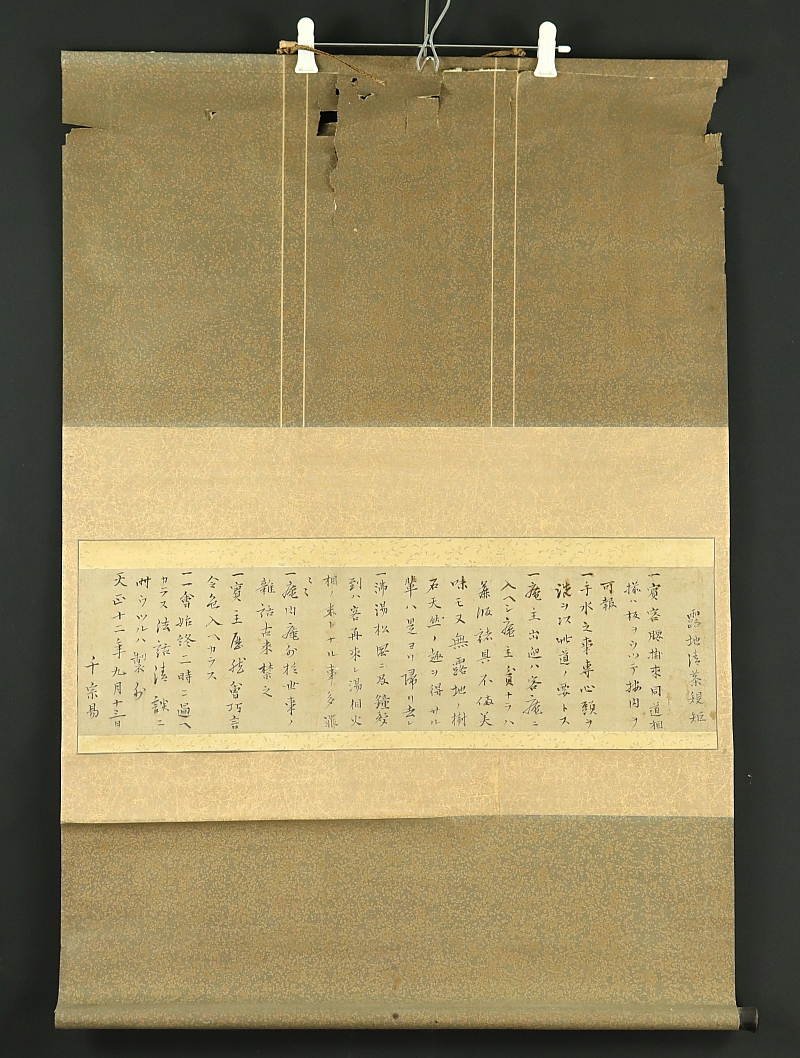 露地清茶規矩
一賓客腰掛来同道相
揃ハ板ヲウツテ案内ヲ
可報
一手水之事専心頭ヲ
洗ヲ以此道ノ要トス
一庵主出迎ハ客庵ニ
入ヘシ庵主貧ナラハ
茶飯諸具不備美
味モ又無露地ノ樹
石天然ノ趣ヲ得サル
輩ハ是ヨリ帰リ去レ
一沸湯松風ニ及鐘声
到ハ客再来レ湯相火
相ノ差トナル事多罪
〻〻
一庵内庵外於世事ノ
雑話古来禁之
一賓主歴然會巧言
令色入ヘカラス
一一會始終二時ニ過ヘ
カラス法話清談ニ
時ウツルハ製外
天正十二年九月十三日
千宗易